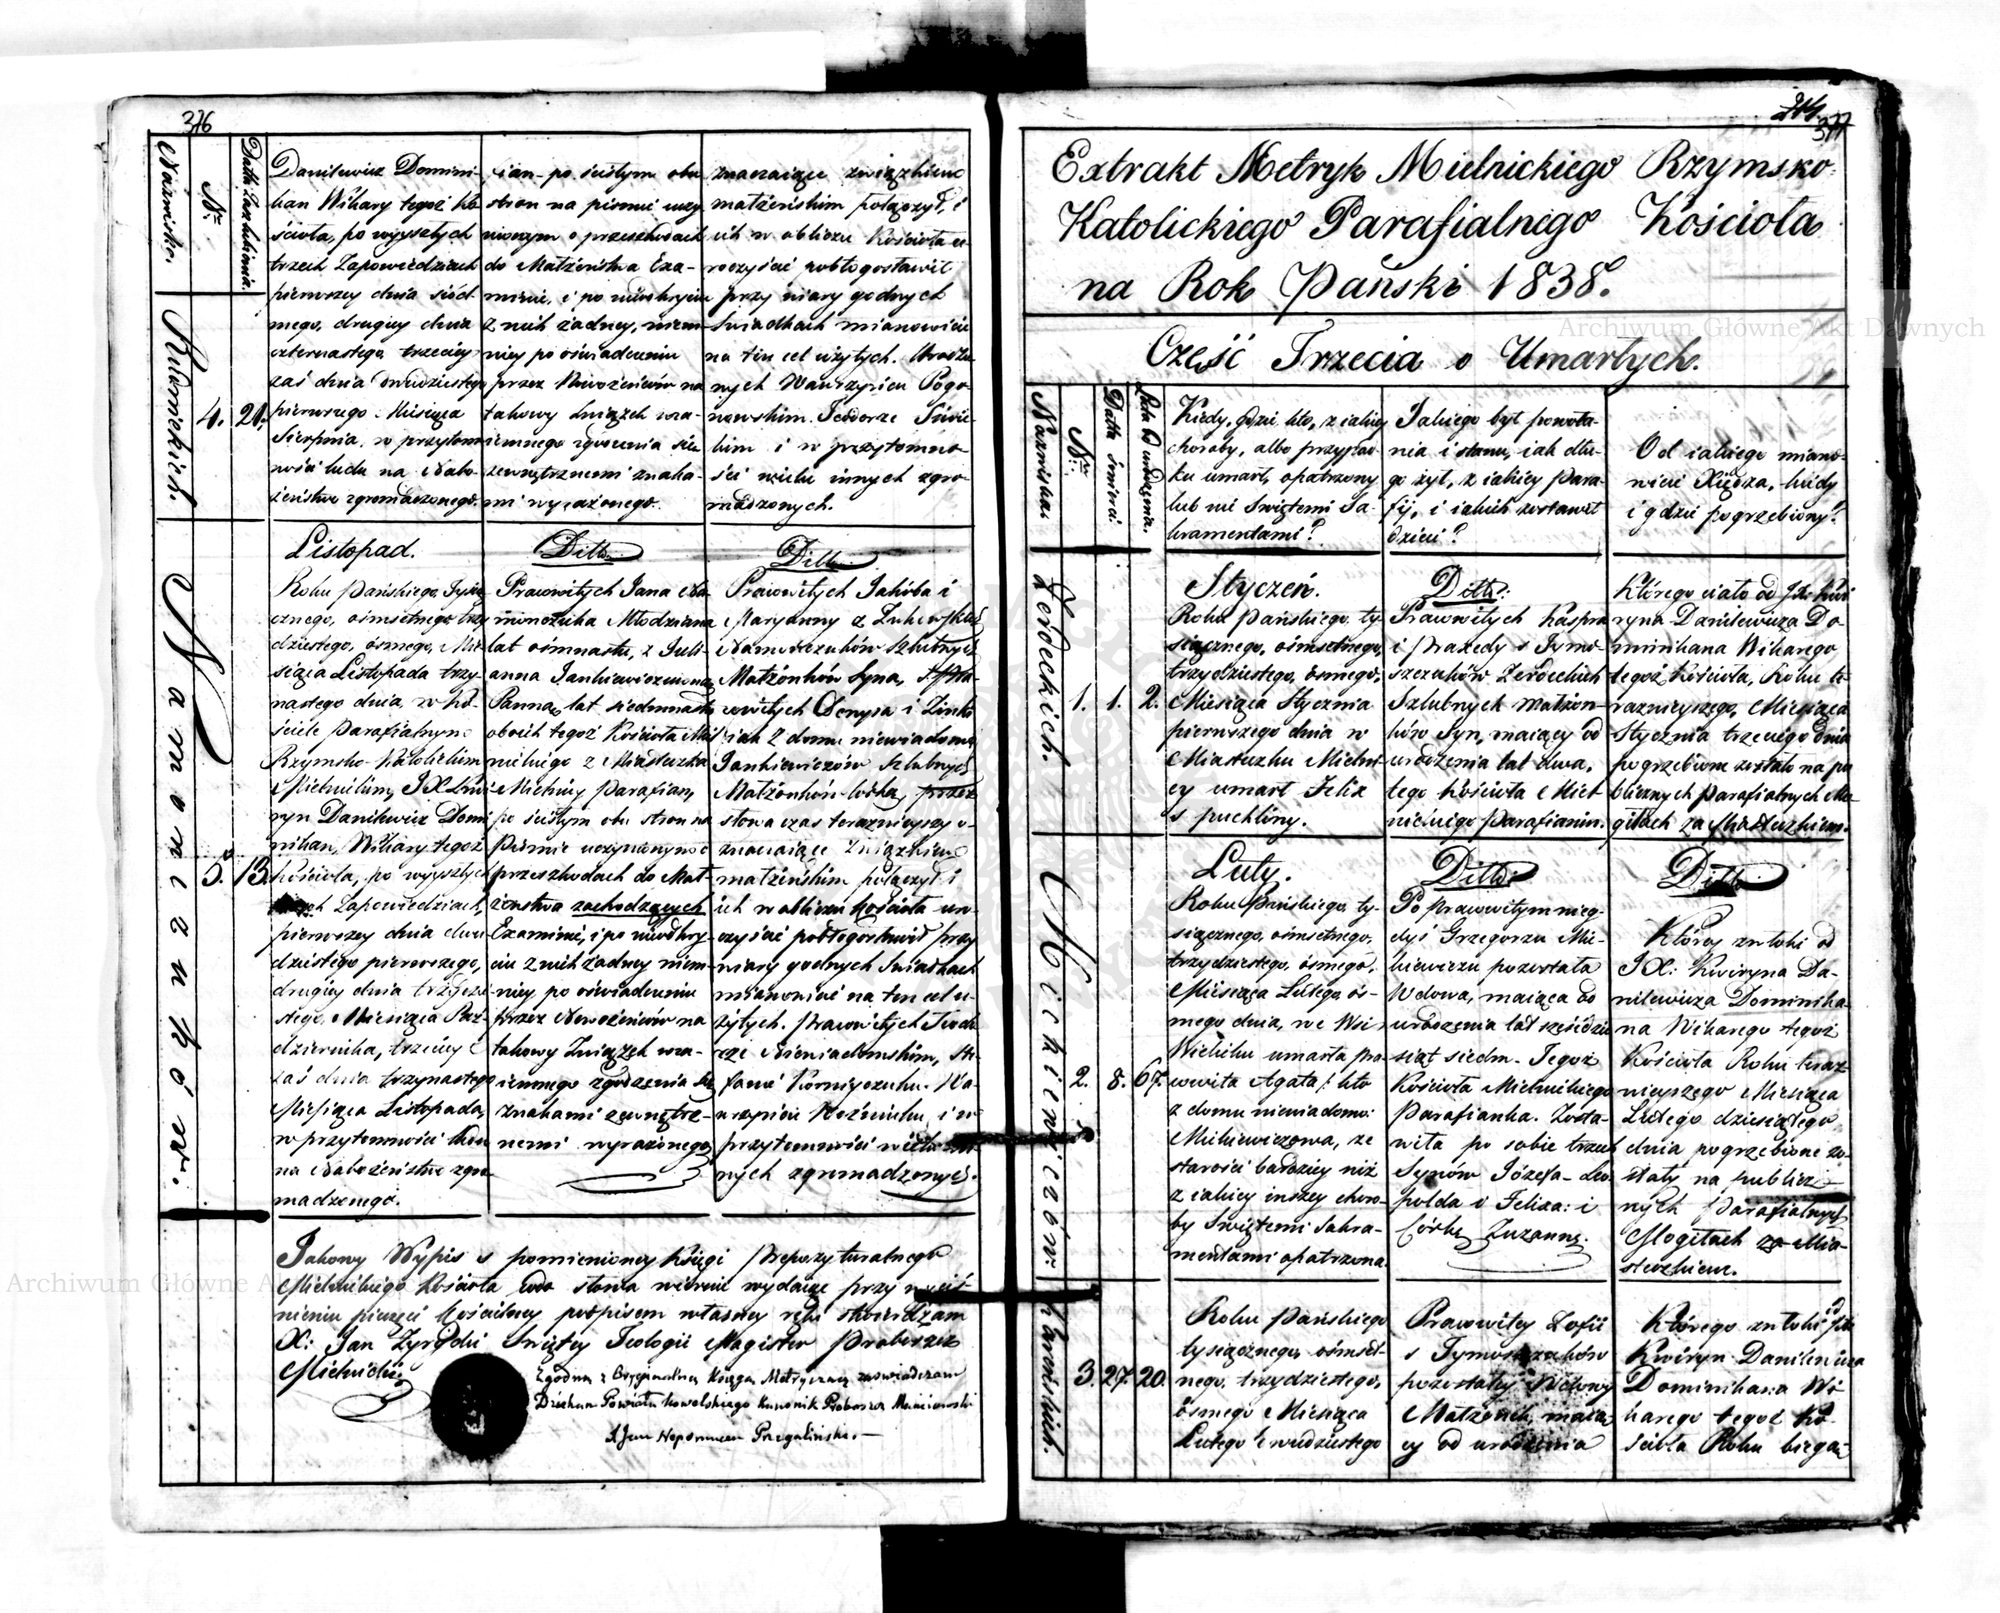 376
Nazwisko.
Nr.
Datta Zaslubienia.
Rudnickich.
4.
21.
Danilewicz Domini-
kan Wikary tegoż Ko-
ścioła, po wyszłych
trzech Zapowiedziach
pierwszey dnia siód-
mego, drugiey dnia
czternastego, trzeciey
zaś dnia dwudziestego
pierwszego Miesiąca
Sierpnia, w przytom-
ności ludu na Nabo-
żeństwo zgromadzonego.
cian po ścisłym obu
stron na pismie uczy-
nionym o przeszkodach
do Małżeństwa Exa-
minie, i po nieodkryciu
z nich żadney, niem-
niey po oświadczeniu
przez Nowożeńców na
takowy Związek wza-
iemnego zgodzenia się
zewnętrznemi znaka-
mi wyrażonego.
znaczaiące związkiem
małżeńskim połączył, i
ich w obliczu Kościoła u-
roczyście pobłogosławił
przy wiary godnych
Świadkach mianowicie
na ten cel użytych. Urodzo-
nych Wawrzyńcu Pogo-
nowskim Teodorze
kim i w przytomno-
ści wielu innych zgro-
madzonych.
Namoniczuków.
5.
13.
Listopad.
Roku Pańskiego Tysią-
cznego, ośmsetnego trzy-
dziestego, ósmego, Mie-
siąca Listopada trzy-
nastego dnia, w Ko-
ściele Parafialnym
Rzymsko-Katolickim
Mielnickim, JX Kwi-
ryn Danilewicz Domi-
nikan, Wikary tegoż
Kościoła, po wyszłych
trzech Zapowiedziach,
pierwszey dnia dwu-
dziestego pierwszego,
drugiey dnia trzydzie-
stego, Miesiąca Paź-
dziernika, trzeciey
zaś dnia trzynastego
Miesiąca Listopada,
w przytomności ludu
na Nabożeństwo zgro-
madzonego.
Ditto
Prawowitych Jana Na-
moniczuka Młodziana
lat ośmnastu, z Juli-
anna Jankiewiczewną
Panną lat siedmnastu
oboich tegoż Kościoła Miel-
nickiego z Miasteczka
Mielnicy Parafian,
po ścisłym obu stron na
Pismie uczynionym o
przeszkodach do Mał-
żeństwa zachodzących
Examinie, i po nieodkry-
ciu z nich żadney niem-
niey po oświadczeniu
przez Nowożeńców na
takowy Związek wza-
iemnego zgodzenia się
znakami zewnętrz-
nemi wyrażonego
Ditto
Prawowitych Jakóba i
Maryanny z Żukowskich
Namoniczuków Szlubnych
Małżonków Syna, z Pra-
wowitych Denysa i Zinki
iak z domu niewiadomo
Jankiewiczów Szlubnych
Małżonków Córką, przez
słowa czas teraznieyszy o-
znaczaiące Związkiem
małżeńskim połączył i
ich w obliczu Kościoła uro-
czyście pobłogosławił przy
wiary godnych Świadkach
mianowicie na ten cel u-
żytych. Prawowitych Teodo-
rze Nieniadomskim, Ste-
fanie Korniyczuku. Wa-
wrzyńcu Woźniuku, i w
przytomności wielu in-
nych zgromadzonych.
Takowy Wypis z pomienioney Księgi Prepozyturalnego
Mielnickiego Kościoła co do słowa wiernie wydaiąc przy wycis-
nieniu pieczęci Kościelney podpisem własney ręki stwierdzam
X: Jan Świętey Teologii Magister Proboszcz
Mielnicki.
Zgodno z Oryginalną Księgą Metryczną zaświadczam
Dziekan Powiatu Kowelskiego Kanonik Proboszcz
X Jan Nepomucen
377
Extrakt Metryk Mielnickiego Rzymsko-
Katolickiego Parafialnego Kościoła
na Rok Pański 1838.
Cześć Trzecia o Umarłych.
Nazwiska.
Nr.
Datta Śmierci.
Lata Od urodzenia.
Kiedy, gdzie kto, z iakiey
choroby, albo przypad-
ku umarł, opatrzony
lub nie Świętemi Sa-
kramentami?
Jakiego był powoła-
nia i stanu, iak dłu-
go żył, z iakiey Para-
fij, i iakich zostawił
dzieci?
Od iakiego miano-
wicie Xiędza, kiedy
i gdzie pogrzebiony?
Zerdeckich.
1.
1.
2.
Styczeń.
Roku Pańskiego ty-
siącznego, ośmsetnego,
trzydziestego, ósmego,
Miesiąca Stycznia
pierwszego dnia w
Miasteczku Mielni-
cy umarł Felix
z puchliny.
Ditto:
Prawowitych Kaspra
i Praxedy z Tymo-
szczuków Zerdeckich
Szlubnych małżon-
ków Syn, maiący od
urodzenia lat dwa,
tego Kościoła Miel-
nickiego Parafianin.
Którego ciało od JX Kwi-
ryna Danilewicza Do-
minikana Wikarego
tegoż Kościoła, Roku te-
raznieyszego, Miesiąca
Stycznia trzeciego dnia
pogrzebione zostało na pu-
blicznych Parafialnych Mo-
giłach za Miasteczkiem.
Mickiewiczów.
2.
8.
67.
Luty.
Roku Pańskiego ty-
siącznego, ośmsetnego,
trzydziestego, ósmego,
Miesiąca Lutego ós-
mego dnia, we Wsi
Wielicku umarła Pra-
wowita Agata /: kto
z domu niewiadomo:
Mickiewiczowa, ze
starości bardziey niż
z iakiey inszey choro-
by Świętemi Sakra-
mentami opatrzona.
Ditto:
Po Prawowitym nieg-
dyś Grzegorzu Mic-
kiewiczu pozostała
Wdowa, maiąca od
urodzenia lat sześćdzie-
siąt siedm. Tegoż
Kościoła Mielnickiego
Parafianka. Zosta-
wiła po sobie trzech
Synów Józefa Leo-
polda i Felixa: i
Córkę Zuzannę.
Ditto
Którey zwłoki od
JX: Kwiryna Da-
nilewicza Dominika-
na Wikarego tegoż
Kościoła Roku teraz-
nieyszego Miesiąca
Lutego dziesiątego
dnia pogrzebione zo-
stały na publicz-
nych Parafialnych
Mogiłach za Mia-
steczkiem.
3.
27.
20.
Roku Pańskiego
tysiącznego ośmset-
nego, trzydziestego,
ósmego Miesiąca
Lutego dwudziestego
Prawowitey Zofii
z Tymoszczuków
pozostałey Wdowy
Małżonek, maią-
cy od urodzenia
Którego zwłoki od JX:
Kwiryn Danilewicza
Dominikana Wi-
karego tegoż Ko-
ścioła Roku bieżą-
Archiwum Główne Akt Dawnych